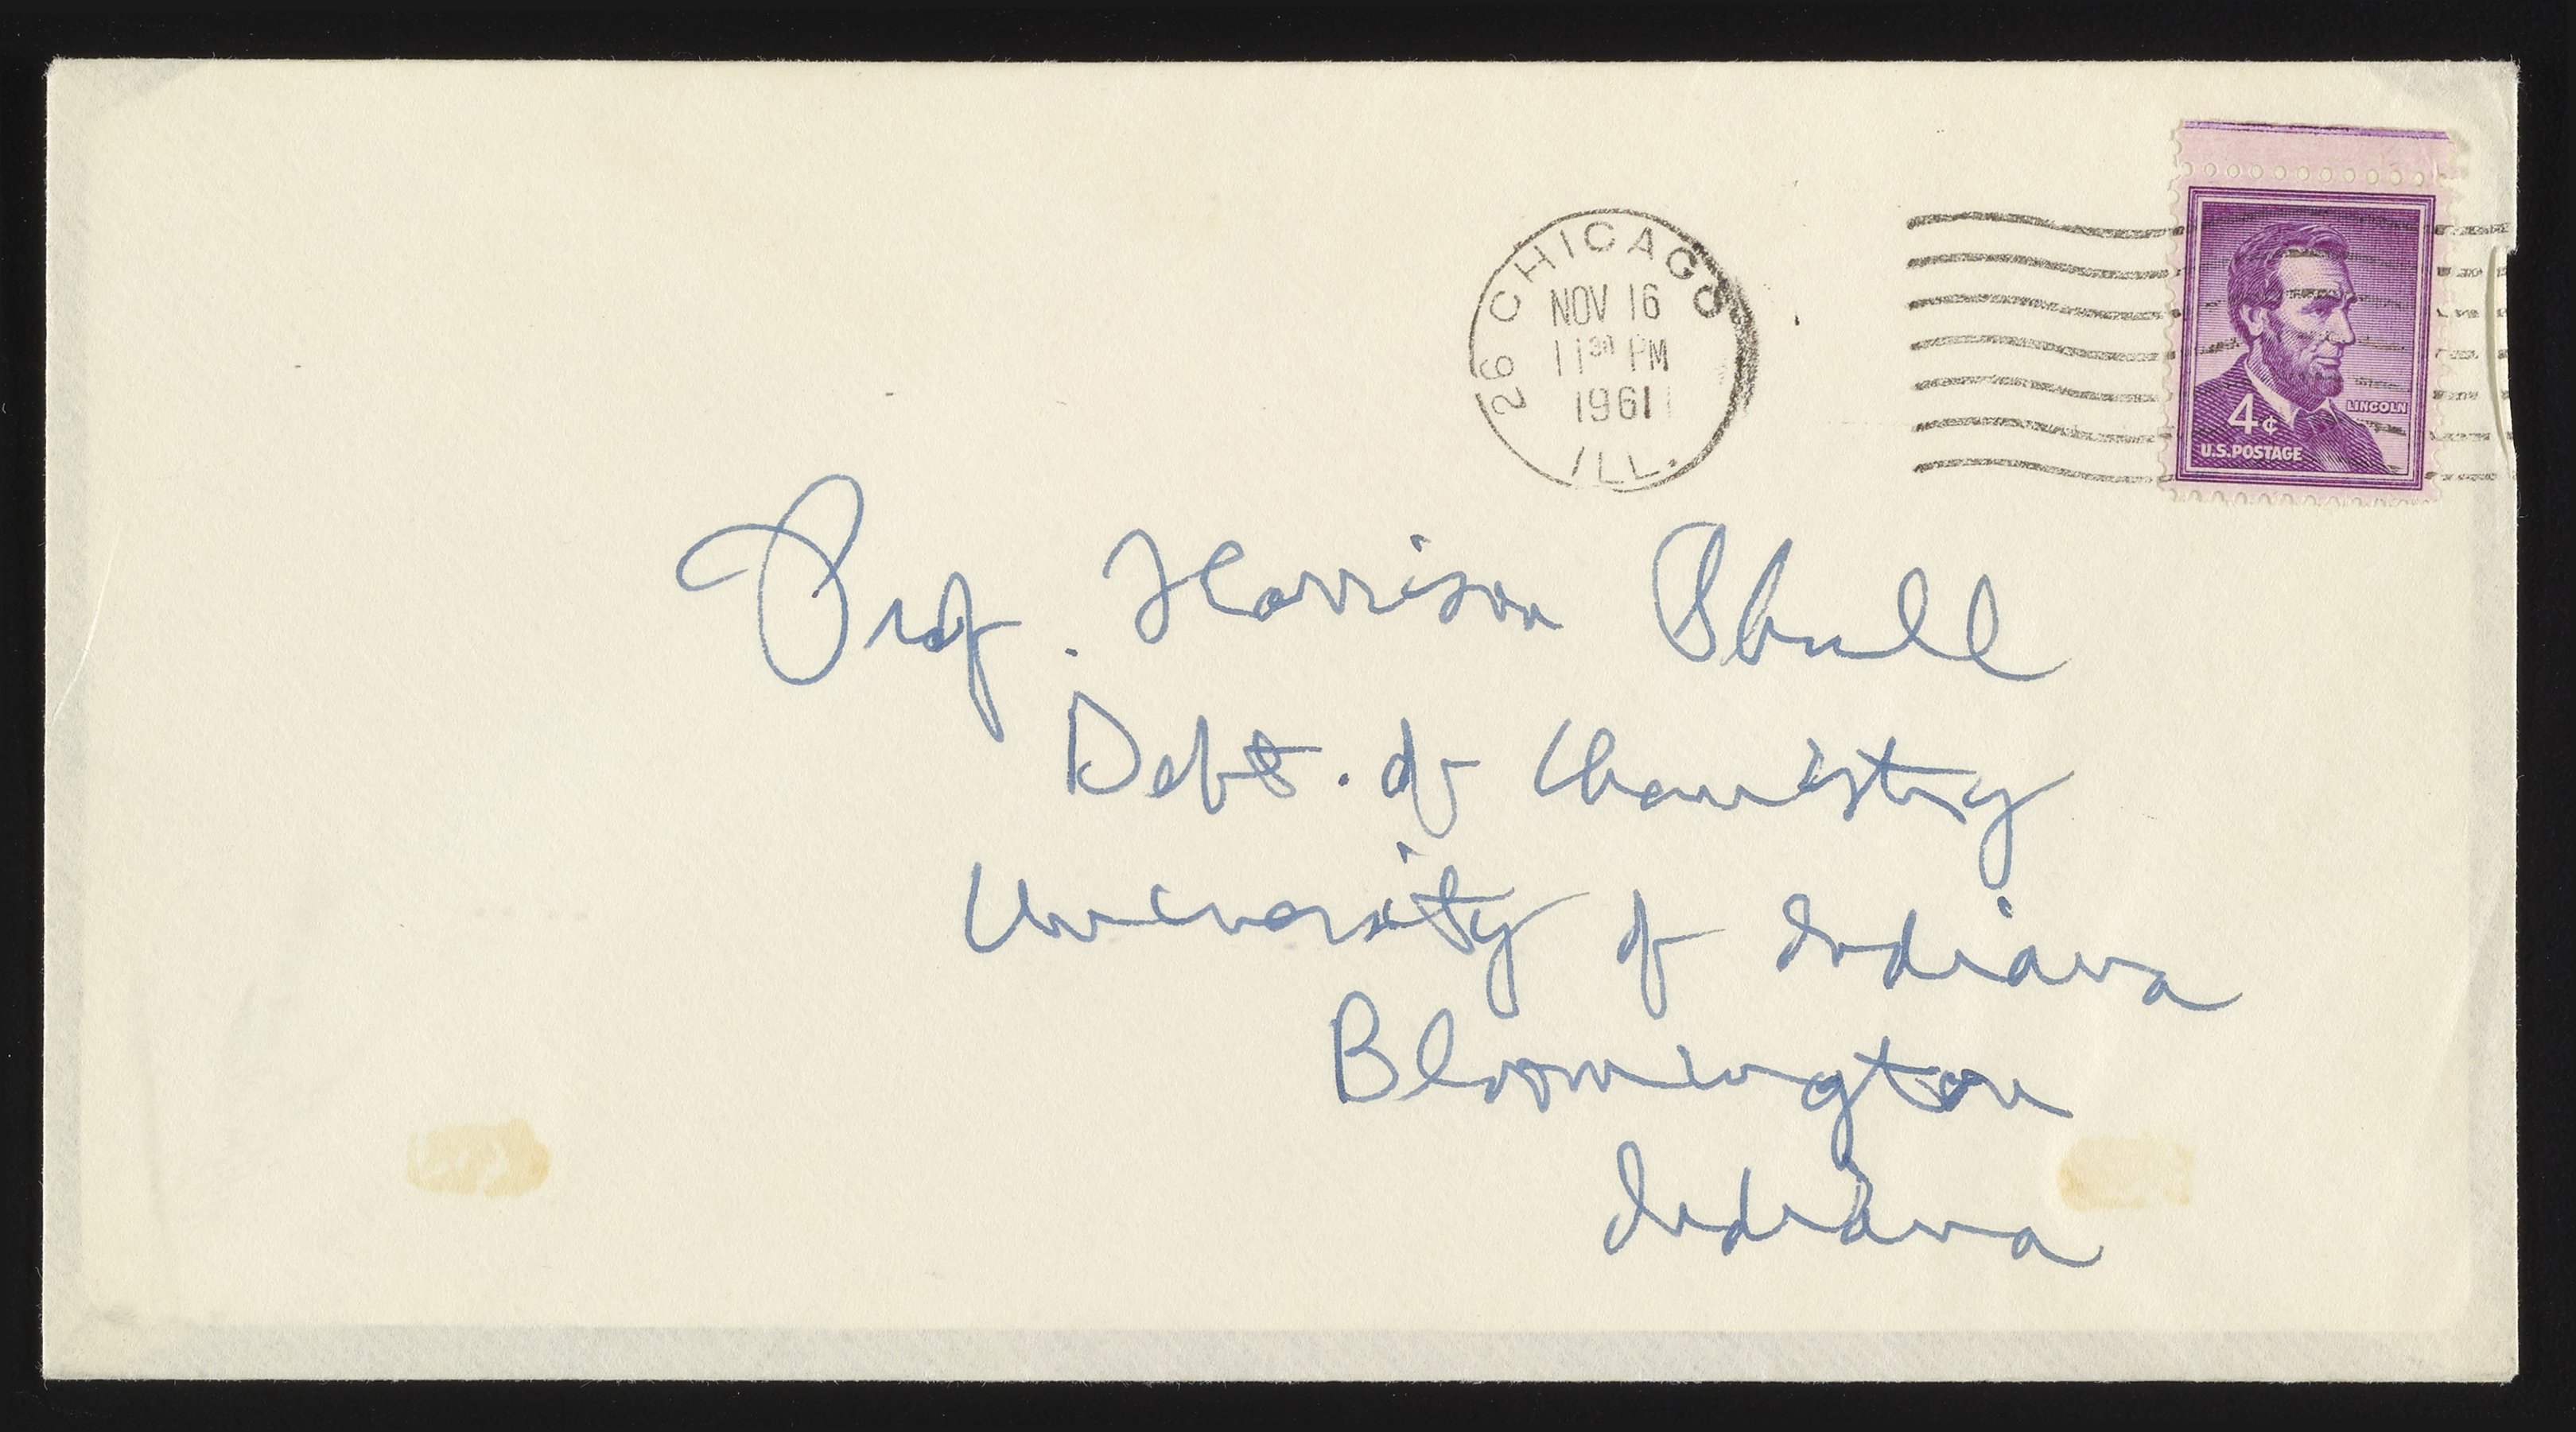 26 CHICAGO
NOV 16
11 30 PM
1961
ILL.
LINCOLN
4¢
U.S.POSTAGE
Prof. Harrison Shull
Dept. of Chemistry
University of Indiana
Bloomington
Indiana